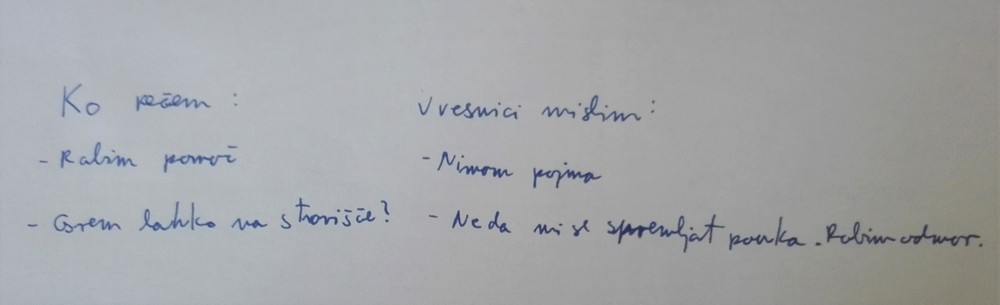 Ko rečem: V resnici mislim:
- Rabim pomoč - Nimam pojma
- Grem lahko na stranišče? - Ne da mi se spremljat pouka. Rabim odmor.